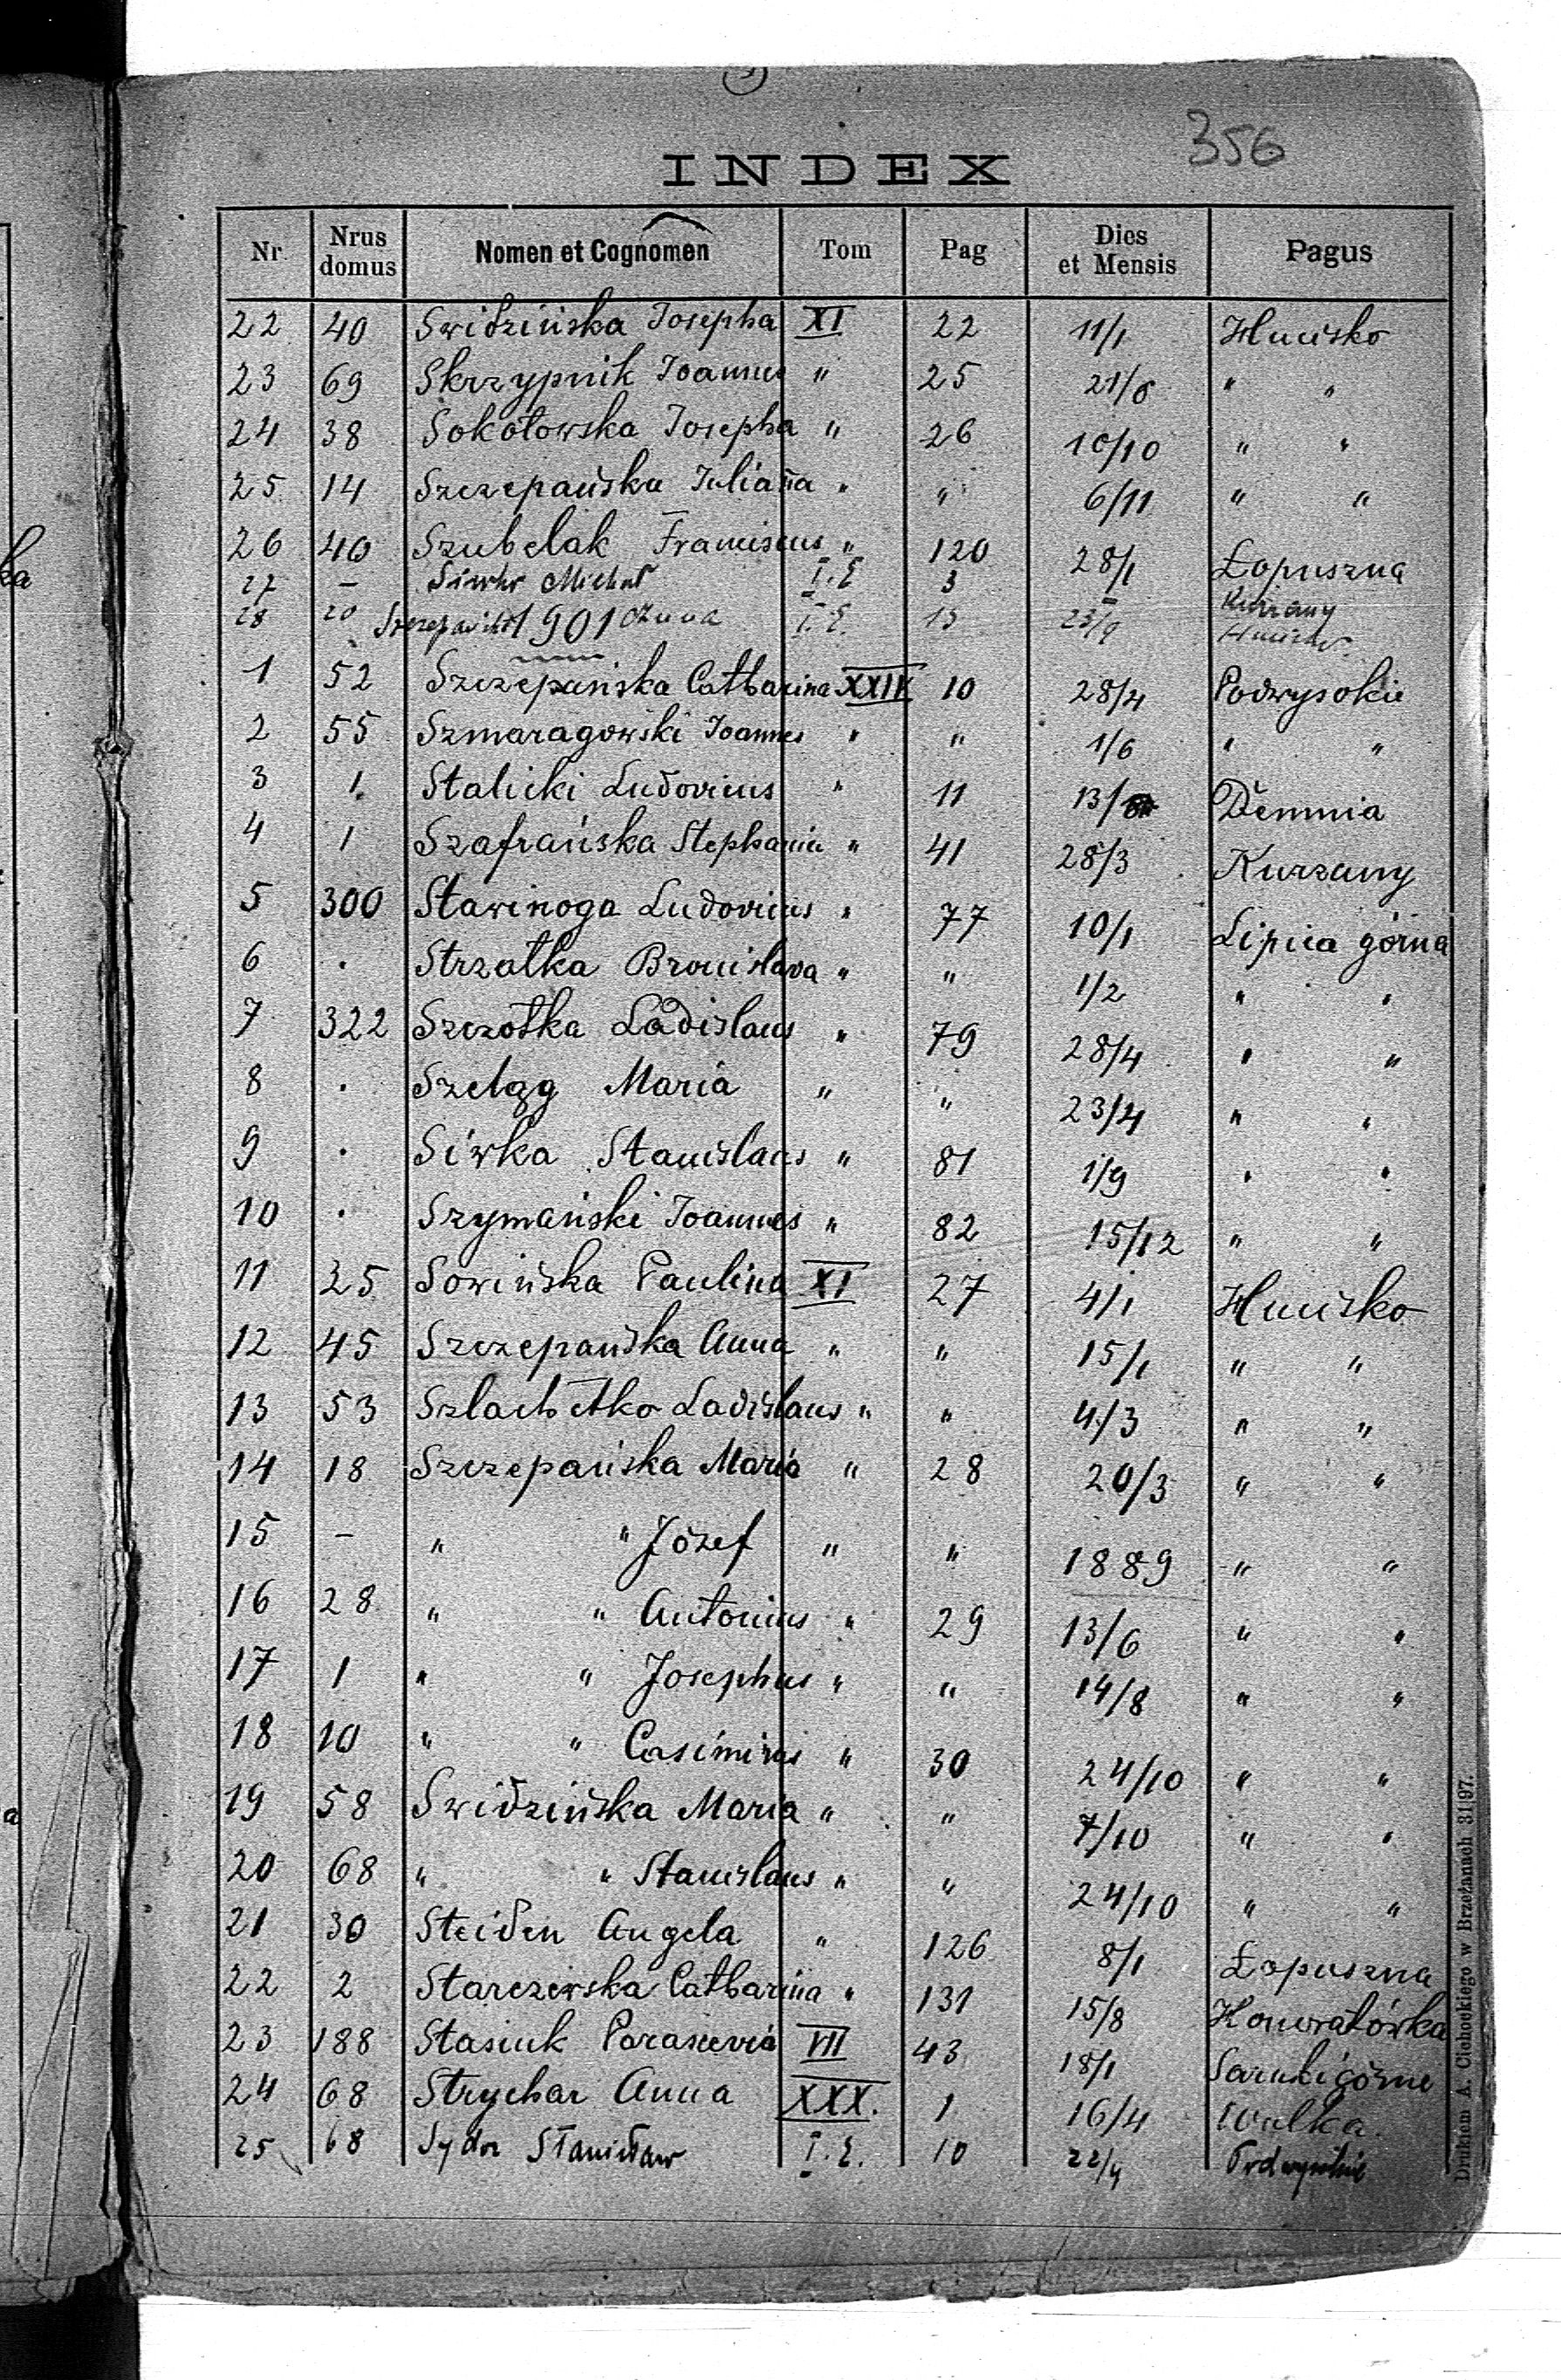 356
INDEX
Nr Nrus domus Nomen et Cognomen Tom Pag Dies et Mensis Pagus
22 40 Swidzińska Josepha XI 22 11/1 Hucisko
23 69 Skrzypnik Joannes " 25 21/6 " "
24 38 Sokołowska Josepha " 26 10/10 " "
25 14 Szczepańska Julianna " " 6/11 " "
26 40 Szubelak Franciscus " 120 28/1 Łopuszna
27 – Michał I.E 3 Kurzany
28 20 Szczepańska Anna I.E. 13 23/9 Hucisko
1901
1 52 Szczepańska Catharina XXIX 10 28/4 Podwysokie
2 55 Szmaragowski Joannes " " 1/6 " "
3 1. Stalicki Ludovicus " 11 13/ Demnia
4 1 Szafrańska Stephania " 41 28/3 Kurzany
5 300 Stawinoga Ludovicus " 77 10/1 Lipica górna
6 . Strzałka Bronislava " " 1/2 " "
7 322 Szczotka Ladislaus " 79 28/4 " "
8 . Szeląg Maria " " 23/4 " "
9 . Siwka Stanislaus " 81 1/9 " "
10 . Szymański Joannes " 82 15/12 " "
11 25 Sowińska Paulina XI 27 4/1 Hucisko
12 45 Szczepańska Anna " " 15/1 " "
13 53 Szlachetko Ladislaus " " 4/3 " "
14 18 Szczepańska Maria " 28 20/3 " "
15 – " " Józef " " 1889 " "
16 28 " " Antonius " 29 13/6 " "
17 1 " " Josephus " " 14/8 " "
18 10 " " Casimirus " 30 24/10 " "
19 58 Swidzińska Maria " " 7/10 " "
20 68 " " Stanislaus " " 24/10 " "
21 30 Steiden Angela " 126 8/1 Łopuszna
22 2 Starczewska Catharina " 131 15/8 Honoratówka
23 188 Stasiuk Parascevia VII 43 18/1 Sarnki górne
24 68 Strychar Anna XXX. 1 16/4 Wulka.
25 68 Sydor Stanisław I.E. 10 22/4 Podwysokie
Drukiem A. Cichockiego w Brzeżanach 31|97.